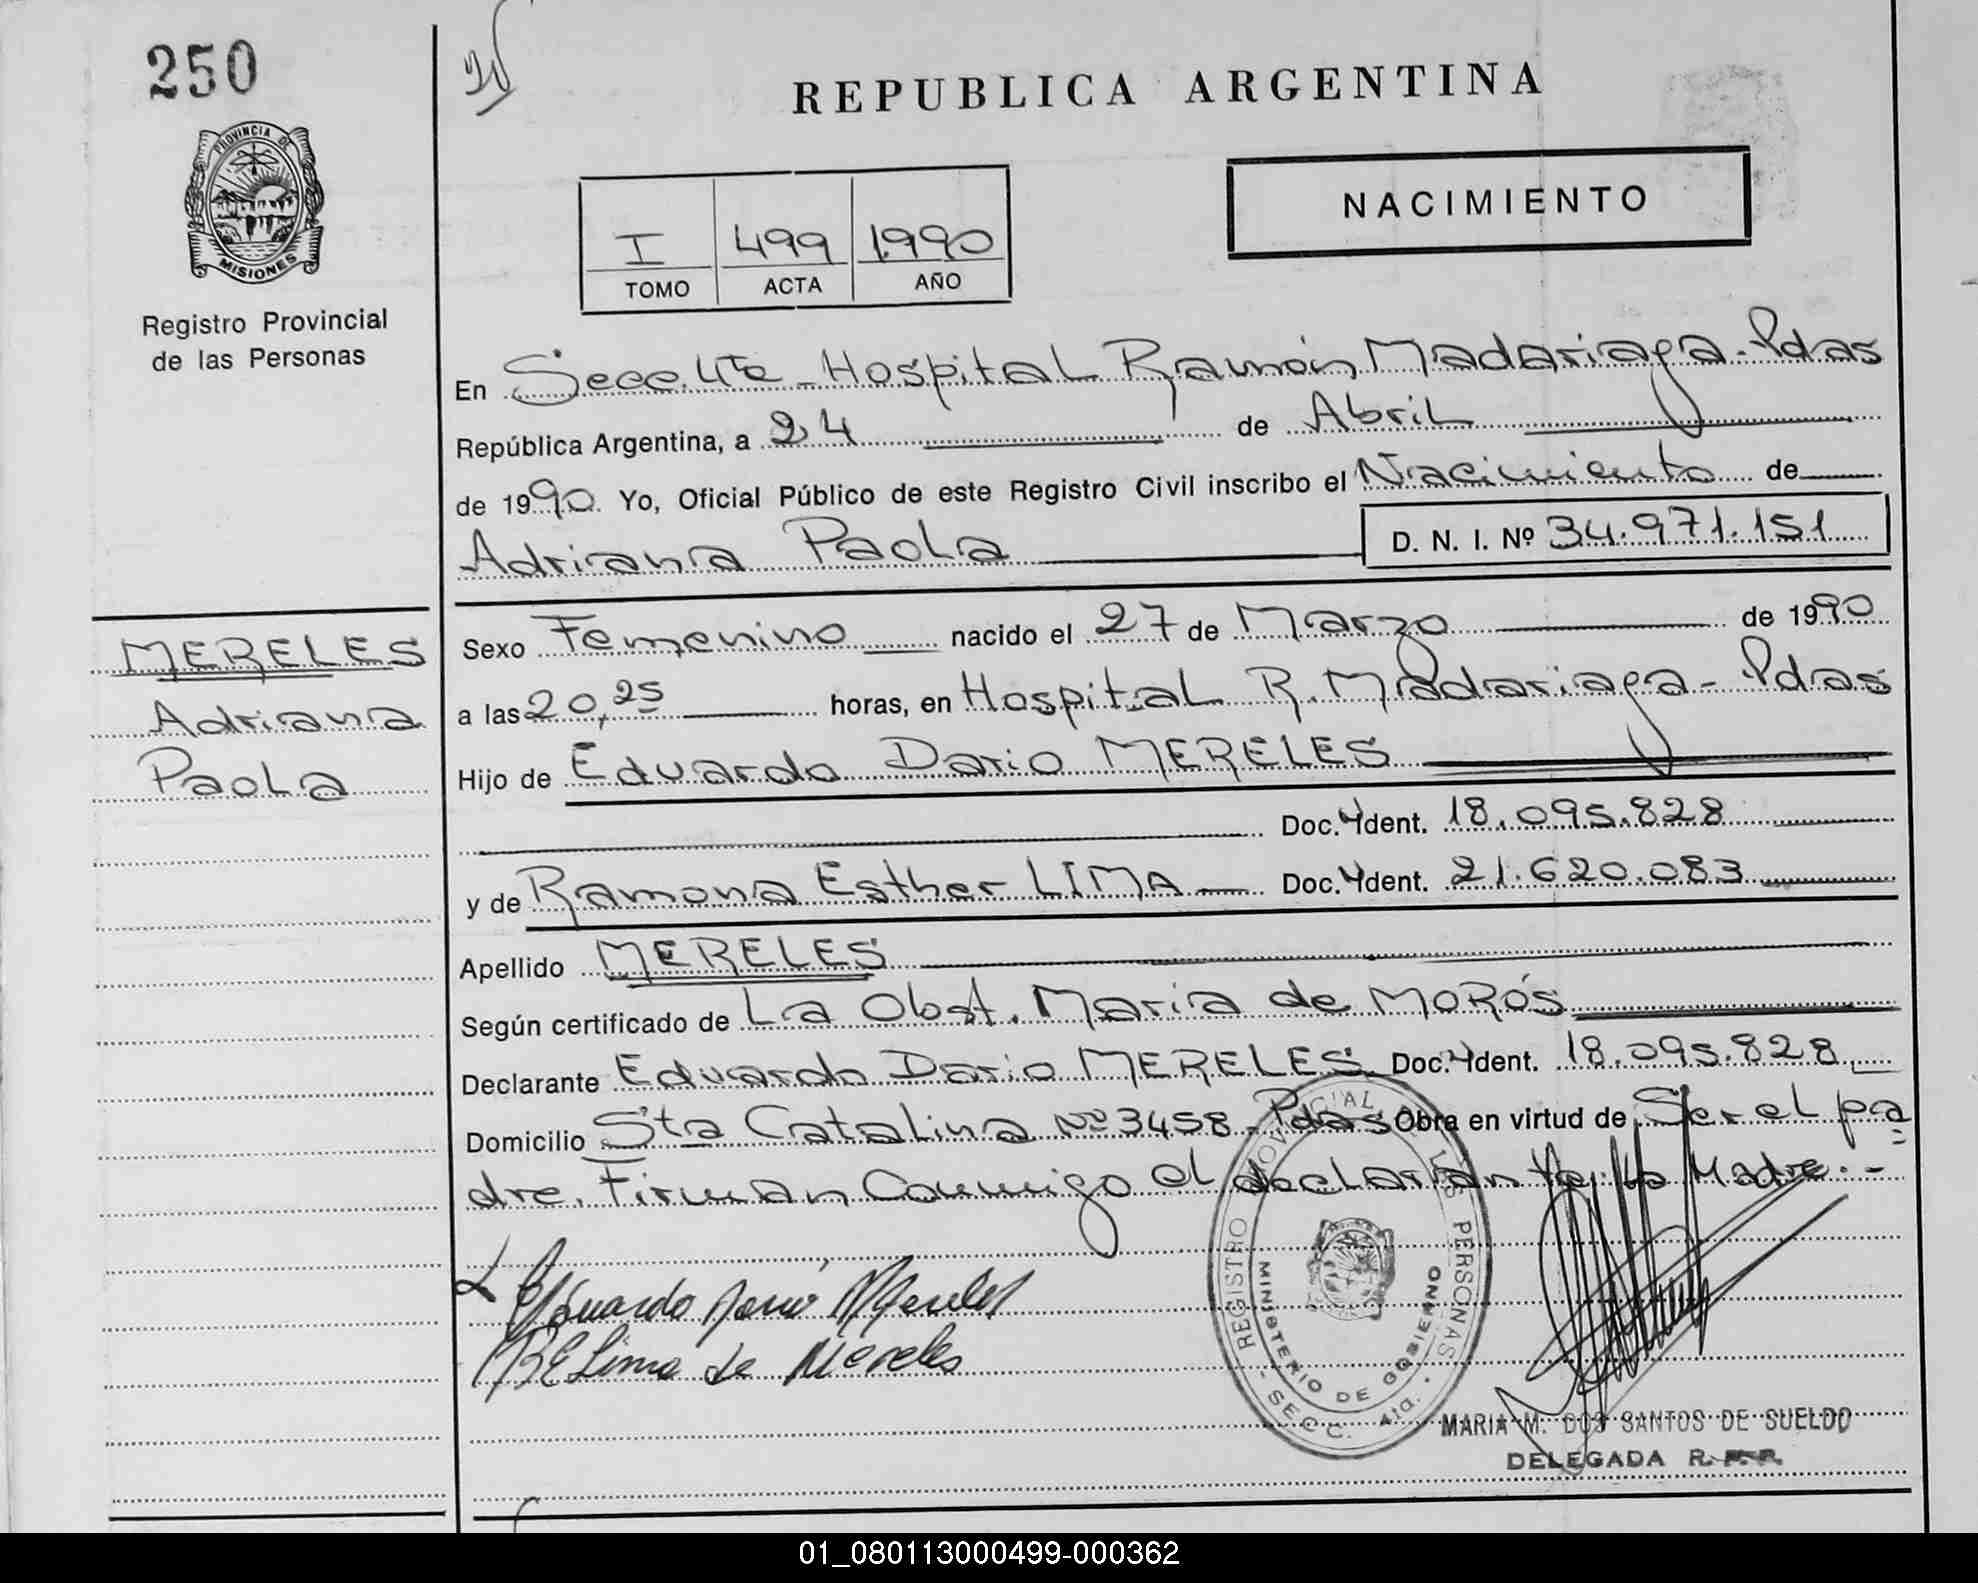 250
REPUBLICA ARGENTINA
PROVINCIA DE
MISIONES
NACIMIENTO
I 499 1990
TOMO ACTA AÑO
Registro Provincial
de las Personas
En Secc. 4ta - Hospital Ramón Madariaga - Pdas
República Argentina, a 24 de Abril
de 1990. Yo, Oficial Público de este Registro Civil inscribo el Nacimiento de
Adriana Paola D. N. I. Nº 34.971.151
MERELES
Adriana
Paola
Sexo Femenino nacido el 27 de Marzo de 1990
a las 20,25 horas, en Hospital R. Madariaga - Pdas
Hijo de Eduardo Dario MERELES
Doc. Ident. 18.095.828
y de Ramona Esther LIMA Doc. Ident. 21.620.083
Apellido MERELES
Según certificado de La Obst. Maria de MOROS
Declarante Eduardo Dario MERELES Doc. Ident. 18.095.828
Domicilio Sta Catalina Nº 3458 - Pdas Obra en virtud de Ser el pa
dre. Firman Conmigo el declarante Madre.-
Eduardo Dario Mereles
RELima de Mereles
REGISTRO PROVINCIAL DE LAS PERSONAS
MINISTERIO DE GOBIERNO
- SECC. 4ta. -
MARIA M. DOS SANTOS DE SUELDO
DELEGADA R. P. P.
01_080113000499-000362